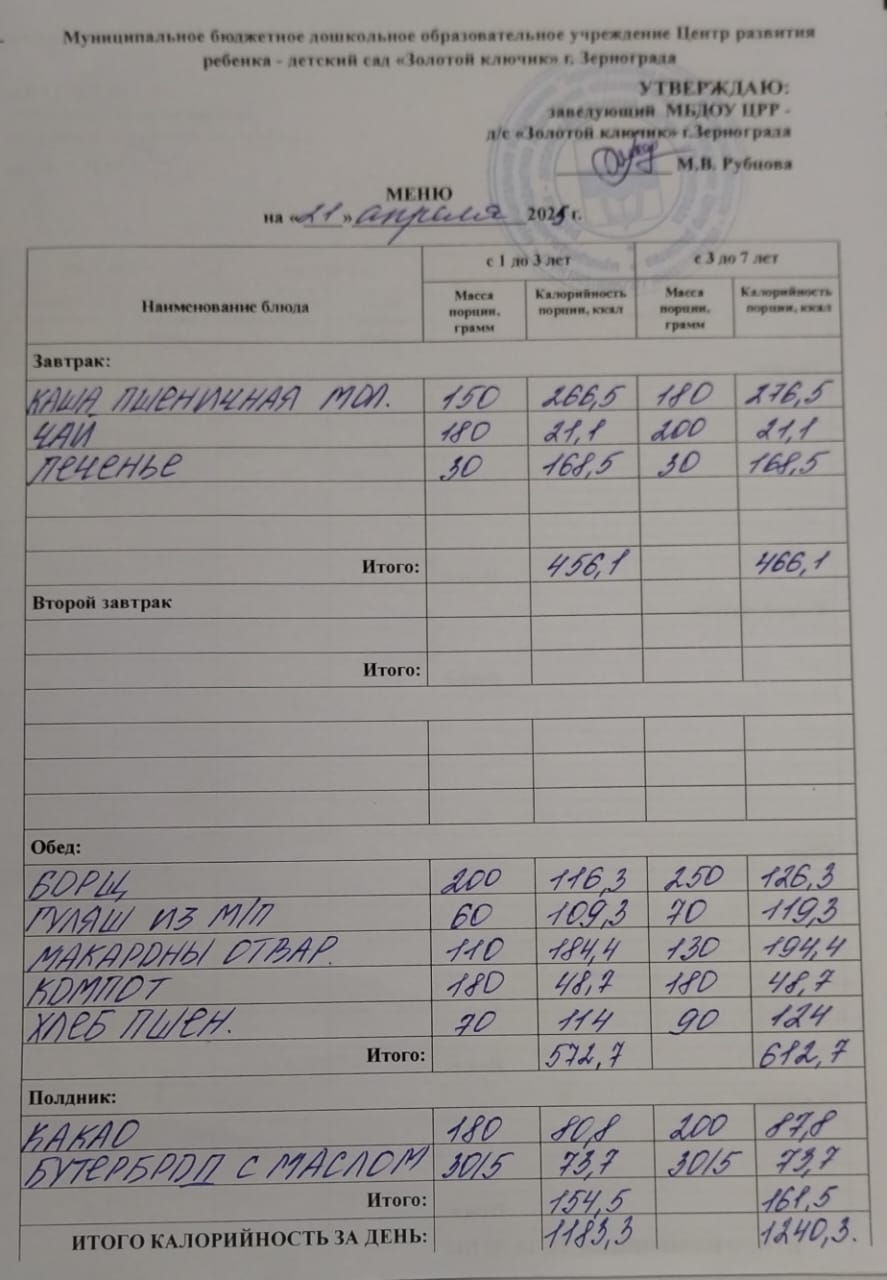 Муниципальное бюджетное дошкольное образовательное учреждение Центр развития
ребенка - детский сад «Золотой ключик» г. Зернограда
УТВЕРЖДАЮ:
заведующий МБДОУ ЦРР -
д/с «Золотой ключик» г.Зернограда
М.В. Рубцова
МЕНЮ
на «21» апреля 2025 г.
Наименование блюда с 1 до 3 лет с 3 до 7 лет
Масса порции, грамм Калорийность порции, ккал Масса порции, грамм Калорийность порции, ккал
Завтрак:
КАША ПШЕНИЧНАЯ МОЛ. 150 266,5 180 276,5
ЧАЙ 180 21,1 200 21,1
ПЕЧЕНЬЕ 30 168,5 30 168,5
Итого: 456,1 466,1
Второй завтрак
Итого:
Обед:
БОРЩ 200 116,3 250 126,3
ГУЛЯШ ИЗ М/П 60 109,3 70 119,3
МАКАРОНЫ ОТВАР. 110 184,4 130 194,4
КОМПОТ 180 48,7 180 48,7
ХЛЕБ ПШЕН. 70 114 90 124
Итого: 572,7 612,7
Полдник:
КАКАО 180 80,8 200 87,8
БУТЕРБРОД С МАСЛОМ 30/5 73,7 30/5 73,7
Итого: 154,5 161,5
ИТОГО КАЛОРИЙНОСТЬ ЗА ДЕНЬ: 1183,3 1240,3.